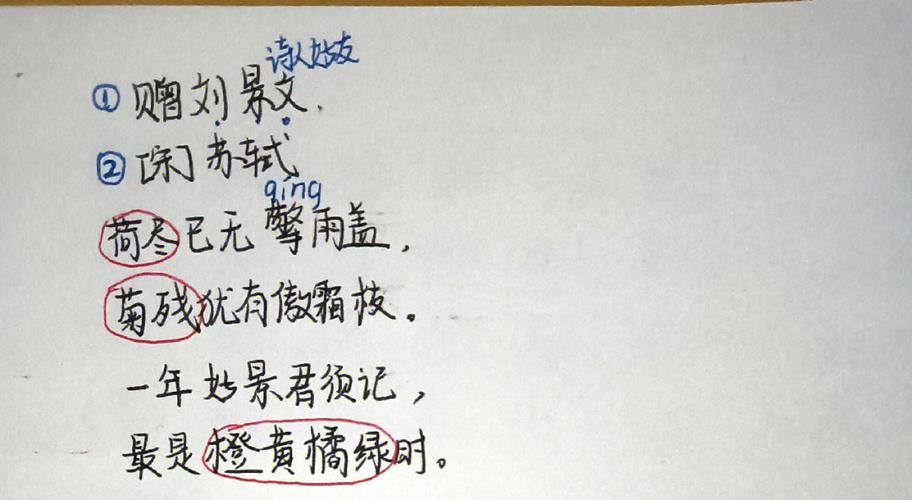 诗人好友
①赠刘景文.
②[宋]苏轼
qíng
荷尽已无擎雨盖,
菊残犹有傲霜枝。
一年好景君须记,
最是橙黄橘绿时。